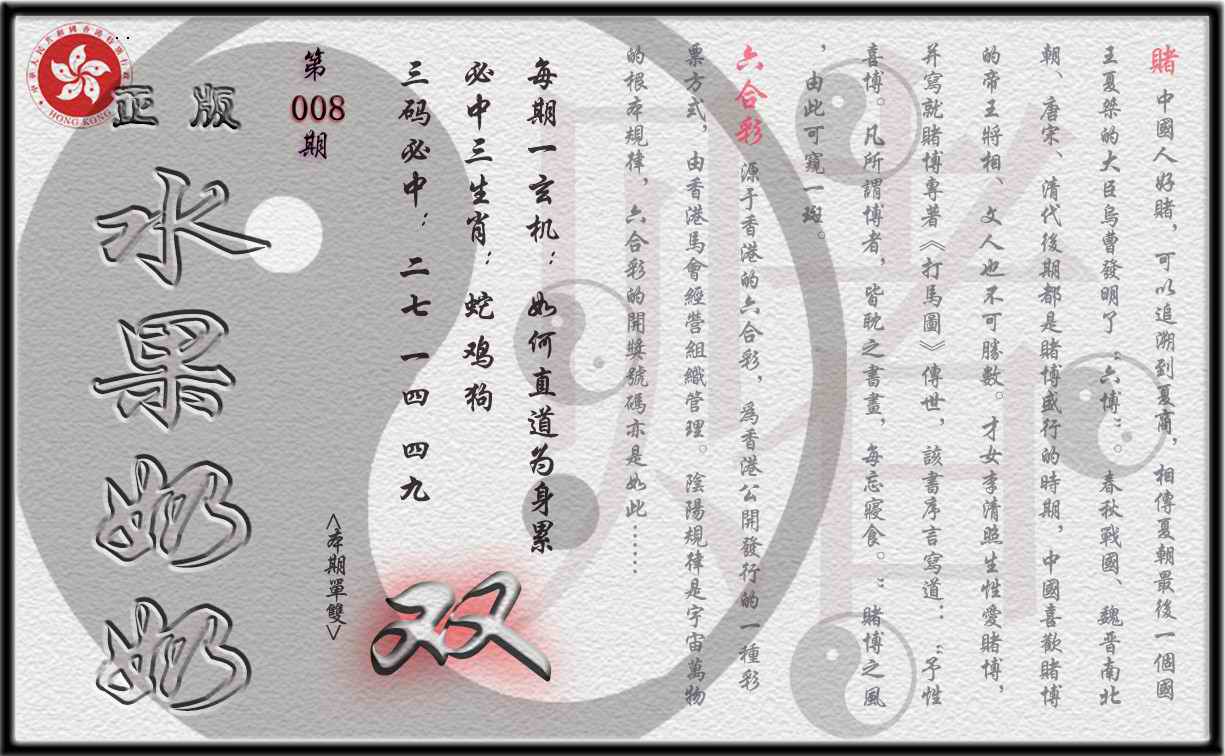 賭 中國人好賭，可以追溯到夏商，相傳夏朝最後一個國
王夏桀的大臣烏曹發明了“六博”。春秋戰國、魏晋南北
朝、唐宋、清代後期都是賭博盛行的時期，中國喜歡賭博
的帝王將相、文人也不可勝數。才女李清照生性愛賭博，
并寫就賭博專著《打馬圖》傳世，該書序言寫道：“予性
喜博。凡所謂博者，皆耽之晝晝，每忘寢食。”賭博之風
，由此可窺一斑。
六合彩 源于香港的六合彩，爲香港公開發行的一種彩
票方式，由香港馬會經營組織管理。陰陽規律是宇宙萬物
的根本規律，六合彩的開獎號碼亦是如此……
每期一玄机：如何直道为身累
必中三生肖：蛇鸡狗
三码必中：二七 一四 四九
<本期單雙>
双
第
008
期
正版
水果奶奶
中華人民共和國香港特別行政區
HONG KONG